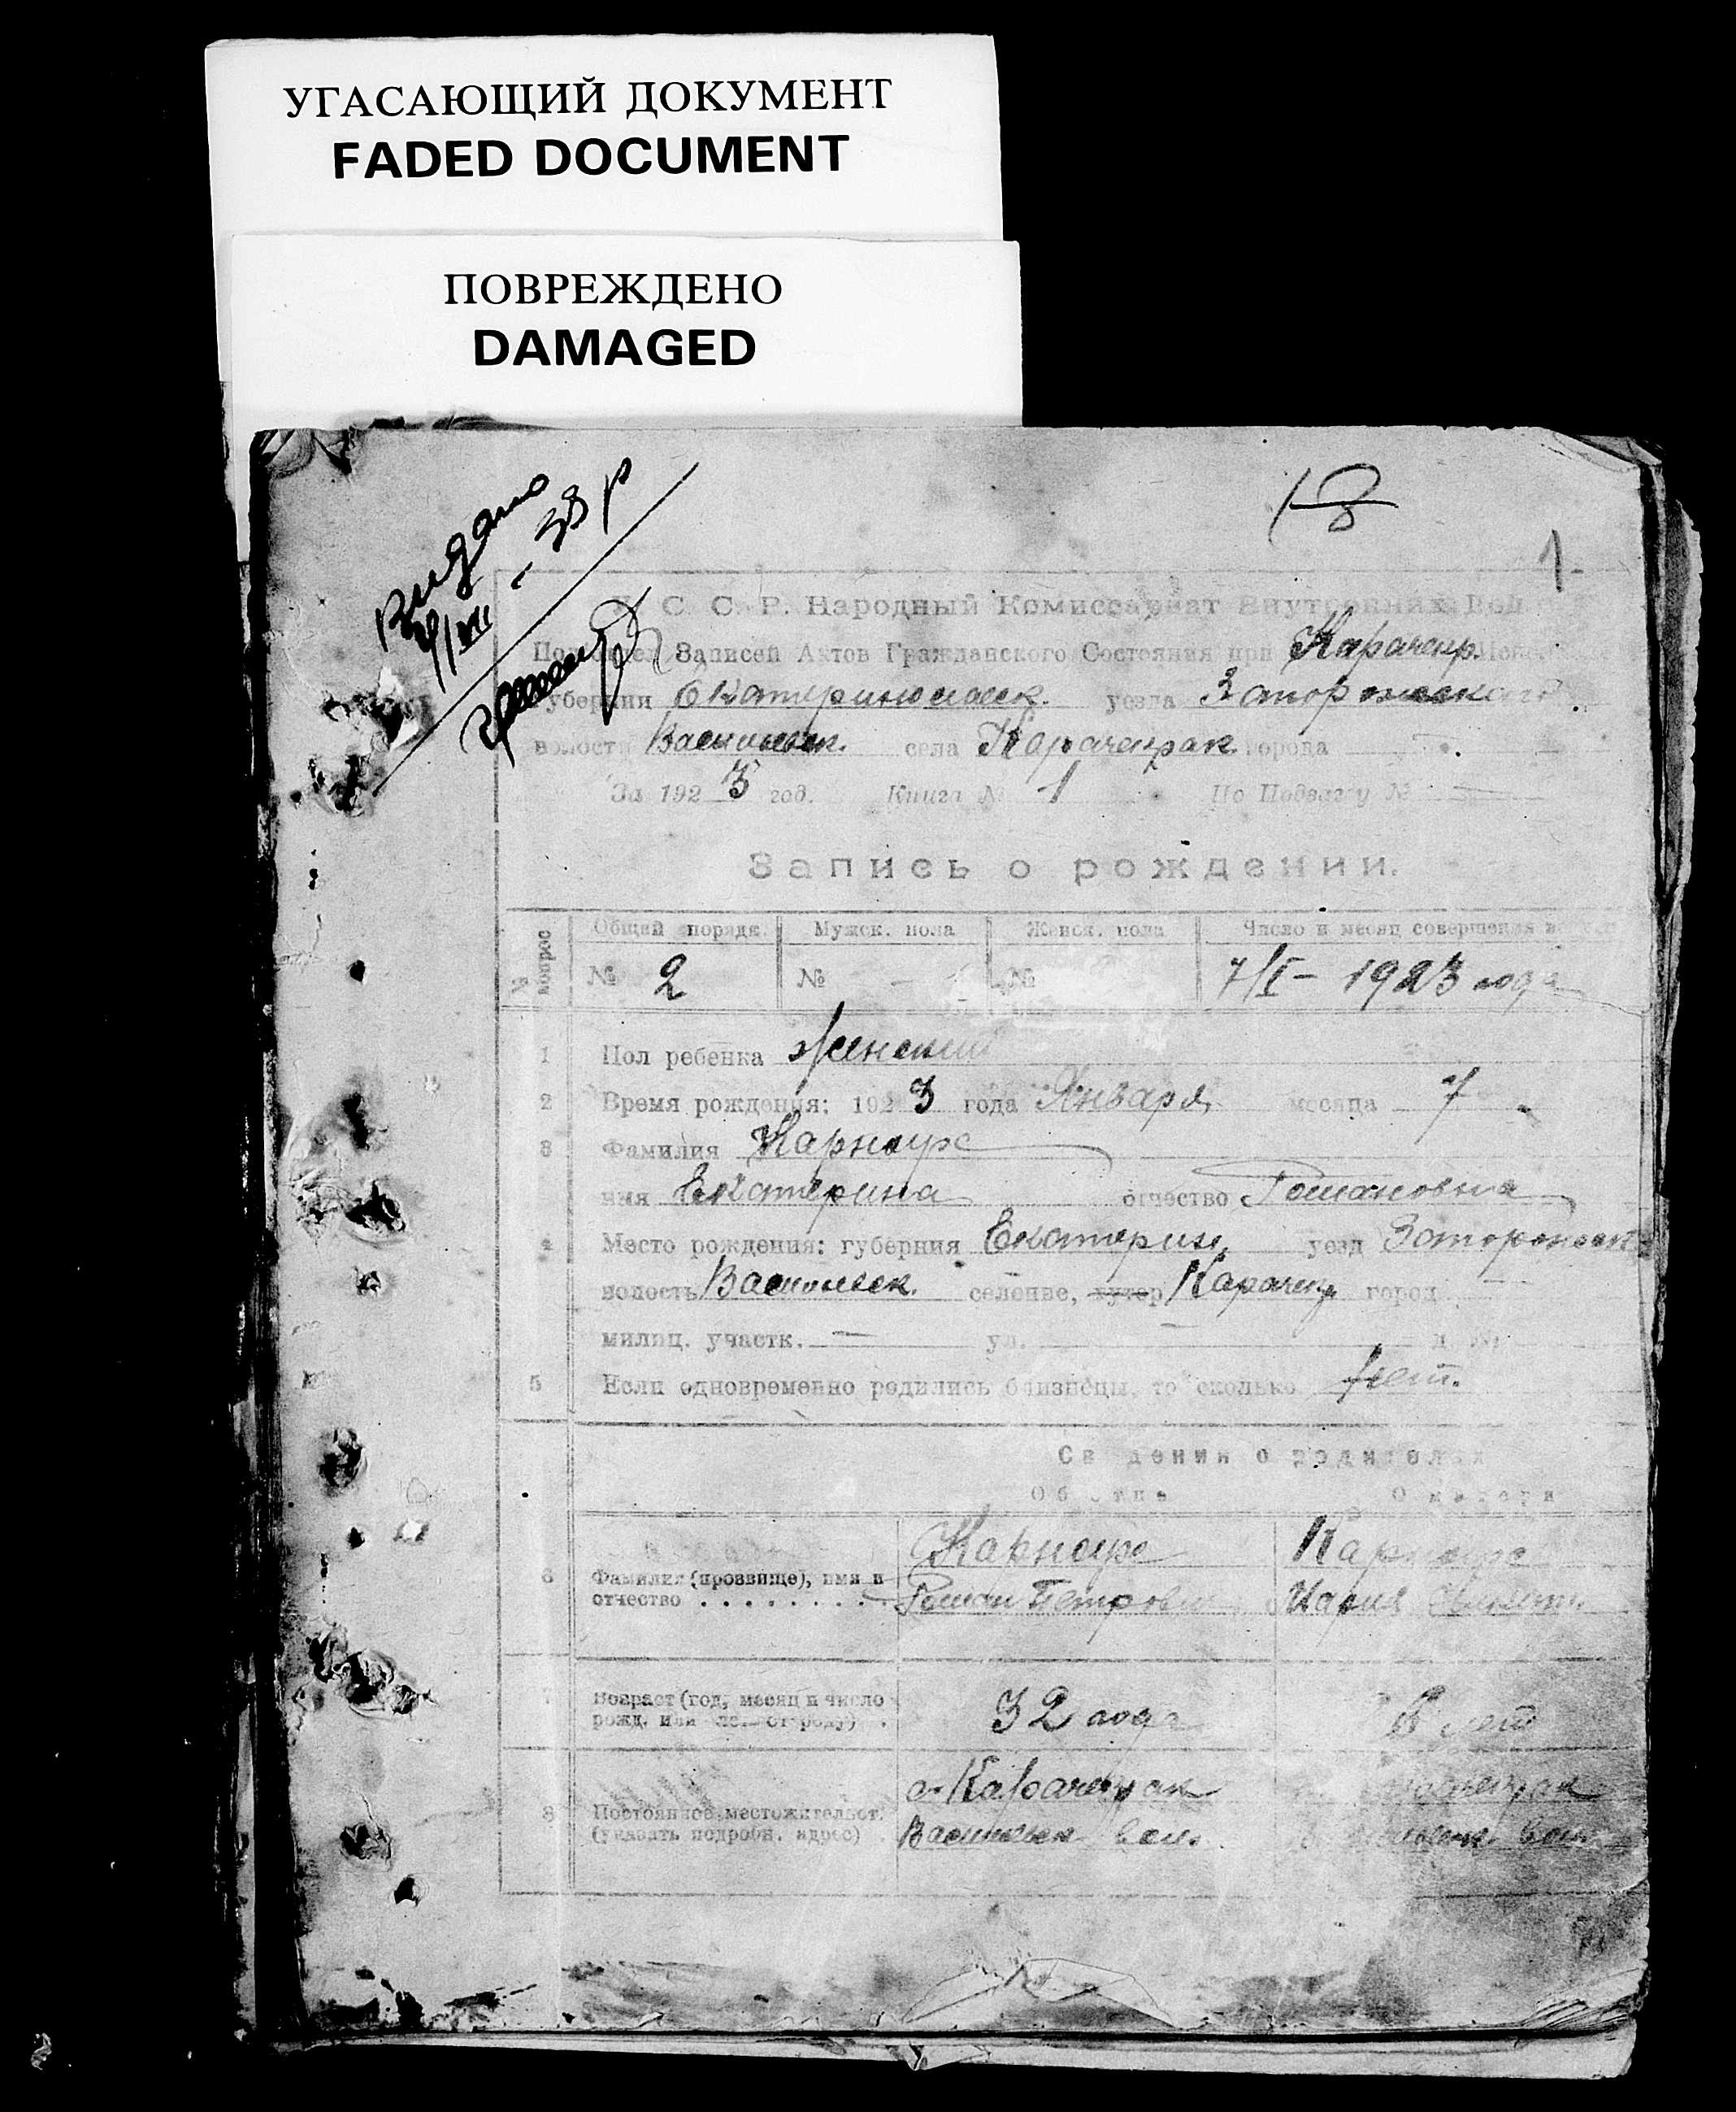 УГАСАЮЩИЙ ДОКУМЕНТ
FADED DOCUMENT
ПОВРЕЖДЕНО
DAMAGED
Видано
38 р
1
С. С. Р. Народный Комиссариат Внутренних Дел
Подотдел Записей Актов Гражданского Состояния при Карачекр.
Губернии Екатеринославск. уезда Запорожского
волости Васильевск. села Карачекрак города —
За 1923 год. Книга № 1 По Подвагу № —
Запись о рождении.
№ вопрос
Общий порядк. Мужск. пола Женск. пола Число и месяц совершения
№ 2 № — № 7/I – 1923 года
1 Пол ребенка Женский
2 Время рождения: 1923 года Января месяца 7
3 Фамилия Карнаух
имя Екатерина отчество Романовна
4 Место рождения: губерния Екатерин. уезд Запорожск
волость Васильевск. селение, хутор Карачекр город —
милиц. участк. — ул. — д. №
5 Если одновременно родились близнецы, то сколько Нет.
Сведения о родителях
Об отце О матери
6 Фамилия (прозвище), имя и отчество
Карнаух Карнаух
Роман Петрович Мария
7 Возраст (год, месяц и число рожд. или лет от роду)
32 года лет
8 Постоянное местожительст. (указать подробн. адрес)
с. Карачекрак Карачекрак
Васильевск вол. вол.